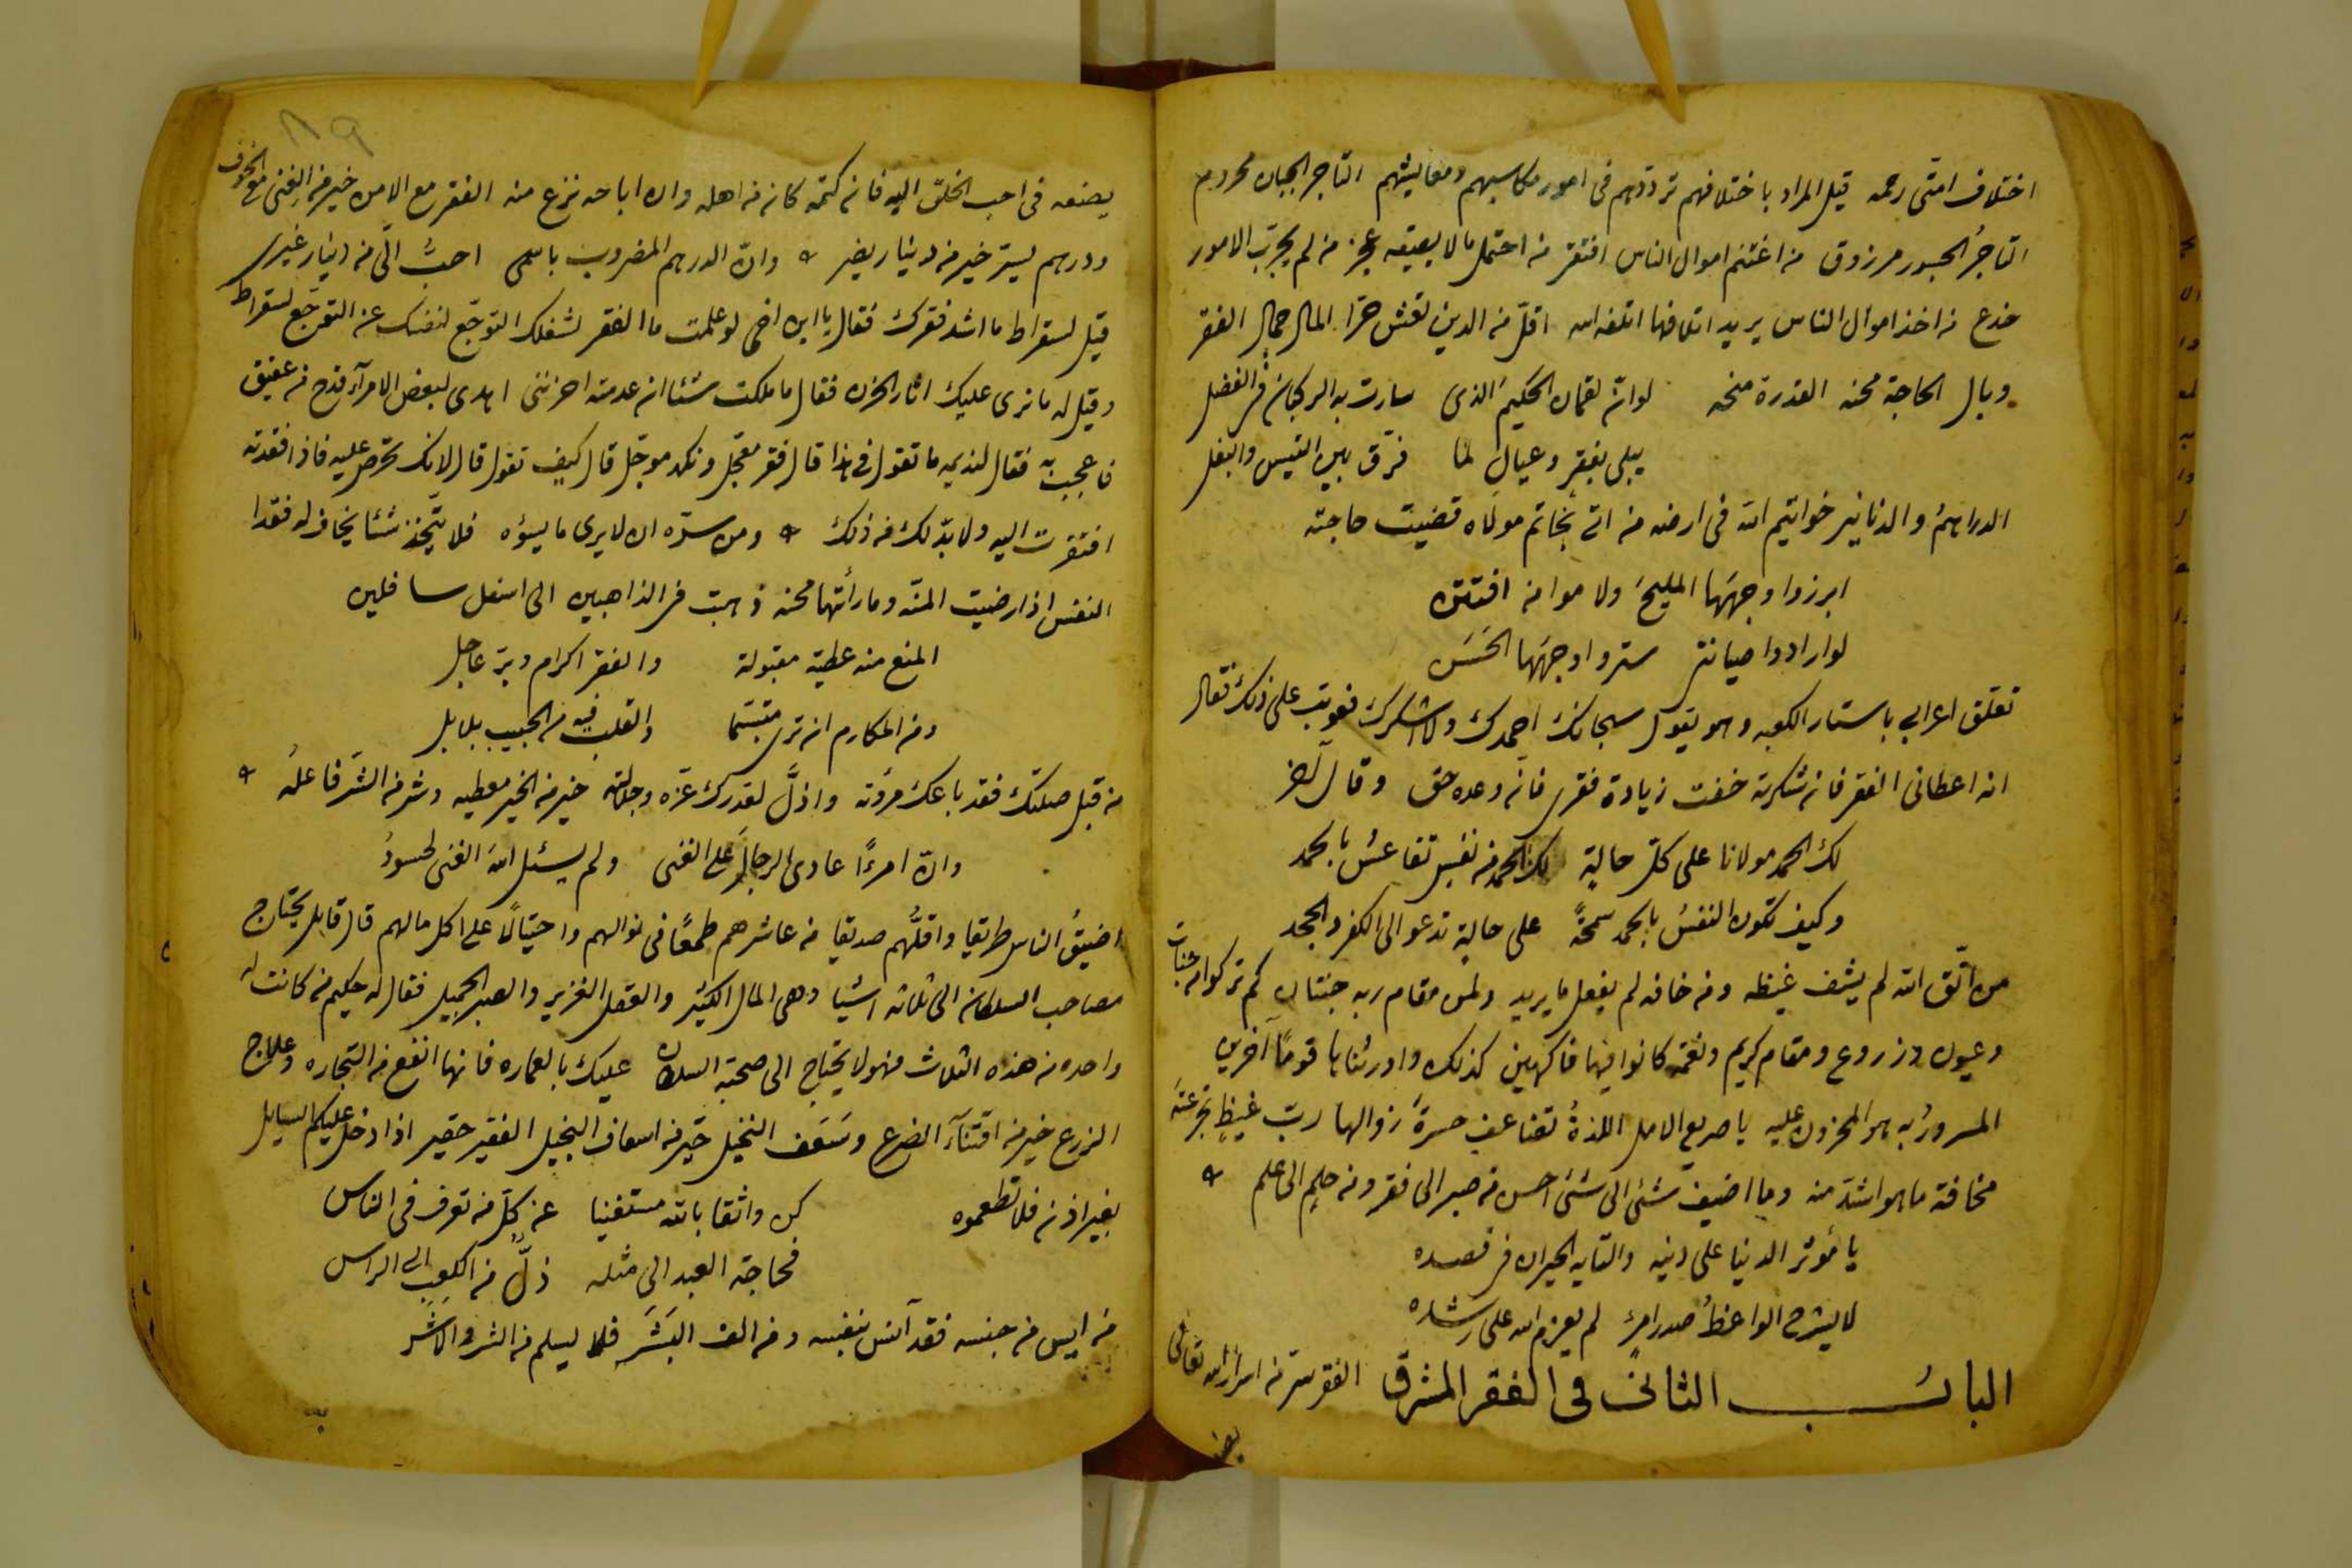 اختلاف امتى رحمه قيل المراد باختلافهم ترددهم فى امور مكاسبهم ومعايشهم التاجر الجبان محروم
التاجرُ الجسور مرزوق من اغتنم اموال الناس افتقر من احتمل مالا يطيقه عجز من لم يجرّب الامور
خدع من اخذ اموال الناس يريد اتلافها اتلفه الله اقلّ من الدين تعش حرّا المال جمال الفقر
وبال الحاجة محنه القدرة منحه لو انّ لقمان الحكيم الذى سارت به الركبان فى الفضل
يبلى بفقر وعيال لما فرّق بين التيس والبغل
الدراهمُ والدنانير خواتيم الله فى ارضه من اتى بخاتم مولاه قضيت حاجته
ابرزوا وجهها المليحَ ولاموا من افتتن
لو ارادوا صيانتى ستروا وجهها الحَسَن
تعلق اعرابى باستار الكعبه وهو يقول سبحانك احمدك ولا اشكرك فعوتب على ذلك فقال
انه اعطانى الفقر فان شكرته خفت زيادة فقرى فانّه وعده حق وقال آخر
لك الحمد مولانا على كلّ حالةٍ لك الحمد من نفس تقاعسُ بالحمد
وكيف تكون النفسُ بالحمد سمحةً على حالةٍ تدعو الى الكفر والجحد
من اتّق الله لم يشف غيظه ومن خافه لم يفعل ما يريد ولمن مقام ربه جنتان كم تركوا من جنات
وعيون وزروع ومقام كريم ونعمه كانوا فيها فاكهين كذلك واورثناها قومًا آخرين
المسرورُ به هو المحزون عليه يا صريع الامل اللذةُ تضاعف حسرةَ زوالها ربّ غيظٍ تجرعته
مخافة ما هو اشدّ منه وما اضيف شئى الى شئى احسن من صبر الى فقر ومن حلمٍ الى علم
يا مُؤثر الدنيا على دينه والتايه الحيران فى قصده
لا يشرح الواعظُ صدر امرئٍ لم يعزم الله على رشده
البابـــ الثانى فى الفقر المشرق الفقر سرّ من اسرار الله تعالى
يضعه فى احب الخلق اليه فان كتمه كان من اهله وان اباحه نزع منه الفقر مع الامن خير من الغنى مع الخوف
ودرهم يستر خير من دينار يضر وانّ الدرهم المضروب باسمى احبّ الّى من دينار غيرى
قيل لسقراط ما اشد فقرك فقال يا ابن اخى لو علمت ما الفقر لشغلك التوجّع لنفسك عن التوجّع لسقراط
وقيل له ما نرى عليك اثار الحزن فقال ما ملكت شئا ان عدمته احزننى اهدى لبعض الامرآء قدح من عقيق
فاعجب به فقال لنديمه ما تقول فى هذا قال فقر معجل ونكد موجّل قال كيف تقول قال لانك تحرص عليه فاذا فقدته
افتقرت اليه ولا بدّ لك من ذلك ومن سرّه ان لا يرى ما يسؤه فلا يتّخذ شئا يخاف له فقدا
النفس اذا رضيت المنّه وما رأتها محنه ذهبت فى الذاهبين الى اسفل سافلين
المنع منه عطية مقبولة والفقر اكرام وبرّ عاجل
ومن المكارم ان ترى متبسّما والقلب فيه من الحبيب بلابل
من قبل صلتك فقد باعك مروّته واذلَّ لقدرك عزّه وجلالته خير من الخير معطيه وشر من الشرّ فاعلُه
وانّ امرءًا عادى الرجالَ على الغنى ولم يسئل الله الغنى لحسودُ
اضيقُ الناس طريقا واقلُّهم صديقا من عاشرهم طمعًا فى نوالهم واحتيالًا على اكل مالهم قال قايل يحتاج
مصاحب السلطان الى ثلاثه اشيا وهى المال الكثير والعقل الغزير والصبر الجميل فقال له حكيم من كانت له
واحده من هذه الثلاث فهو لا يحتاج الى صحبة السلطان عليك بالعماره فانها انفع من التجاره وعلاج
الزرع خير من اقتنآء الضرع وسَعَف النخيل خير من اسعاف البخيل الفقير حقير اذا دخل عليكم السايل
بغير اذن فلا تطعموه كن واثقا بالله مستغنيا عن كلّ من تعرف فى الناس
فحاجة العبد الى مثله ذلّ من الكعب الى الراس
من ايس من جنسه فقد آنس بنفسه ومن الف البَشَر فلا يسلم من الشر والاشر